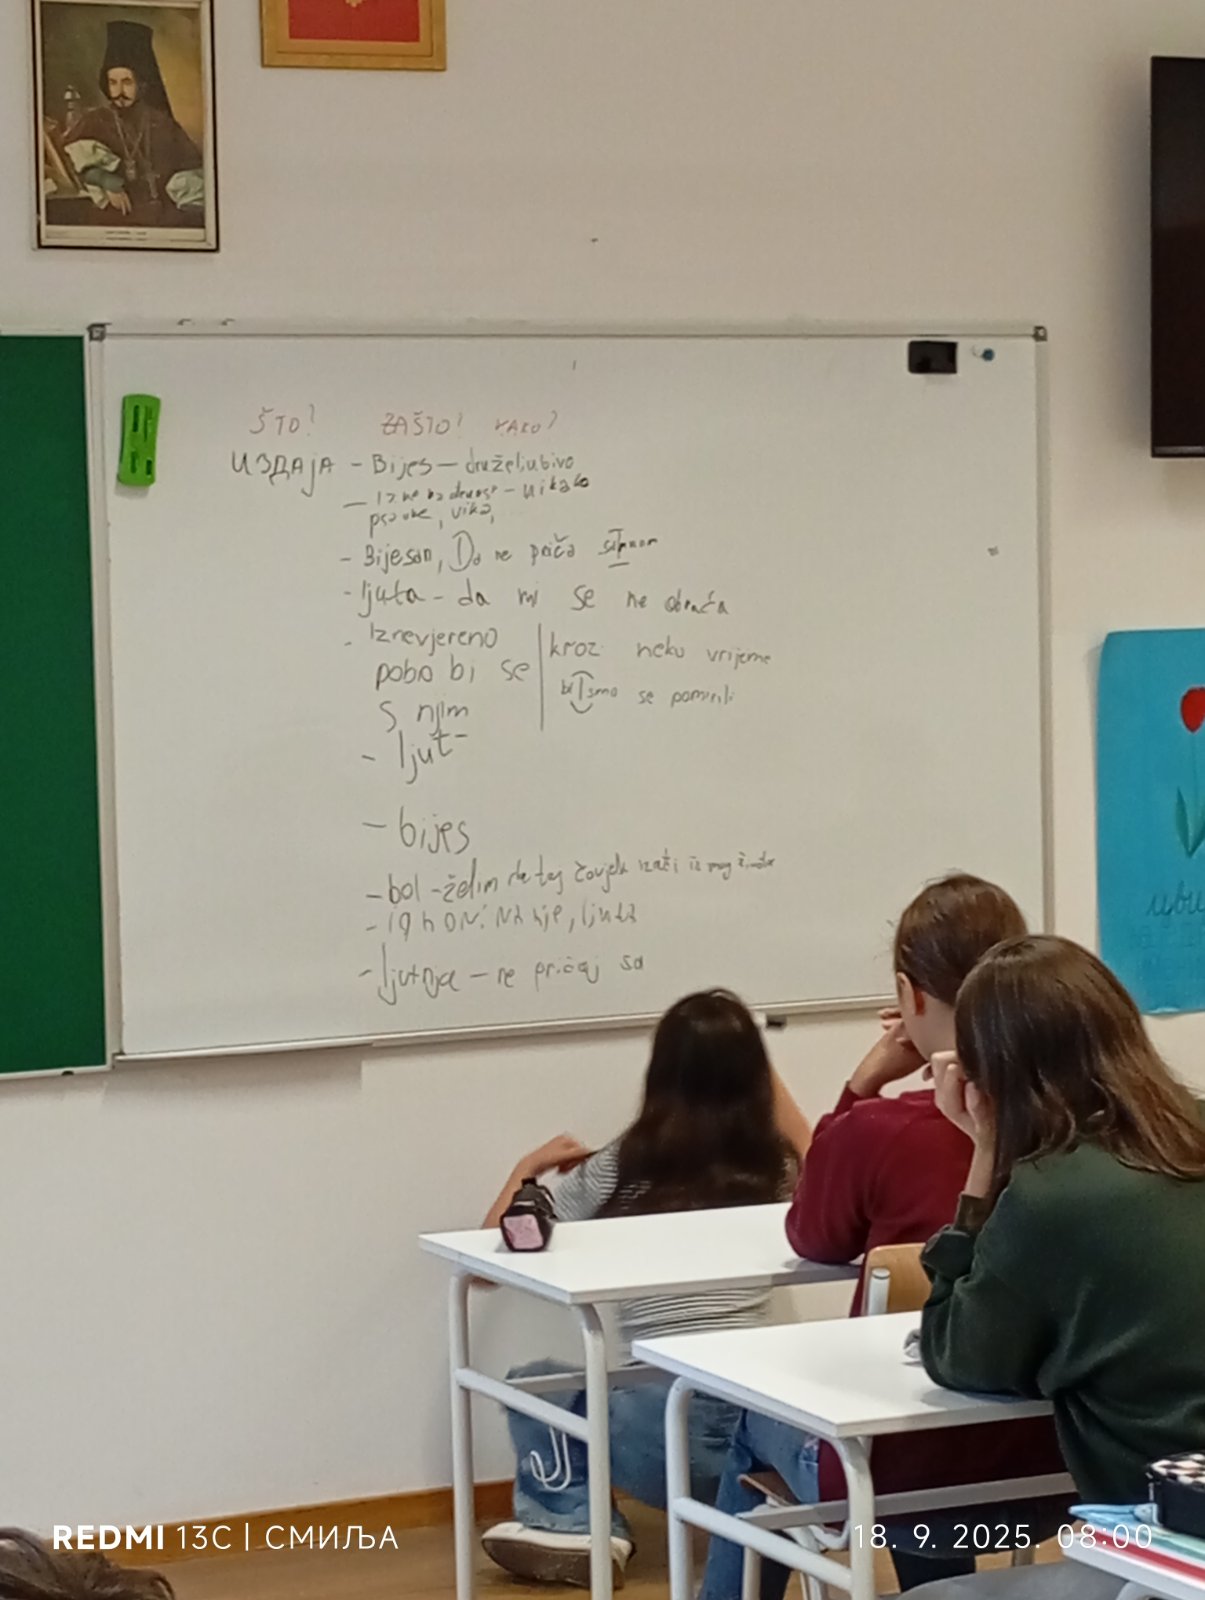 ŠTO? ZAŠTO? KAKO?
ИЗДАЈА - Bijes - druželjubivo
- nikako
psovke, vika,
- Bijesan, Da ne priča samnom
- ljuta - da mi se ne obraća
- Iznevjereno | kroz neko vrijeme
pobio bi se | bi smo se pomirili
s njim
- ljut -
- bijes
- bol - želim da taj čovjek izađi iz mog života
- ignorisanje, ljuta
- ljutnja - ne pričaj sa
REDMI 13C | СМИЉА
18. 9. 2025. 08:00